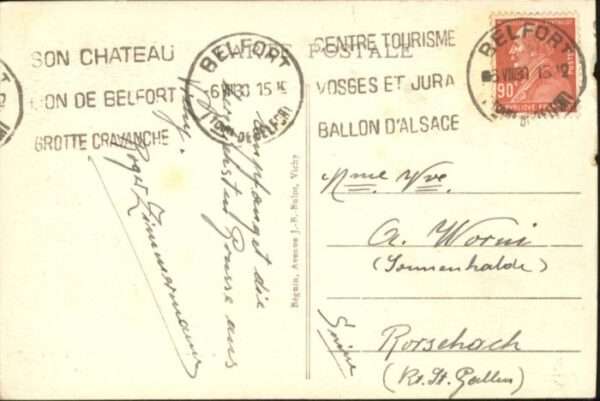 SON CHATEAU
LION DE BELFORT
GROTTE CRAVANCHE
BELFORT
6 VIII 30 15 12
(TERR. DE BELFORT)
CARTE POSTALE
CENTRE TOURISME
VOSGES ET JURA
BALLON D'ALSACE
BELFORT
6 VIII 30 15 12
90c
Empfanget die
herzlichsten Grüsse aus
Vichy.
Roger Zimmermann
Béguin, Avenue J.-B. Bulot, Vichy
Mme. Vve.
A. Worni
(Sonnenhalde)
Rorschach
(Kt. St. Gallen)
Suisse